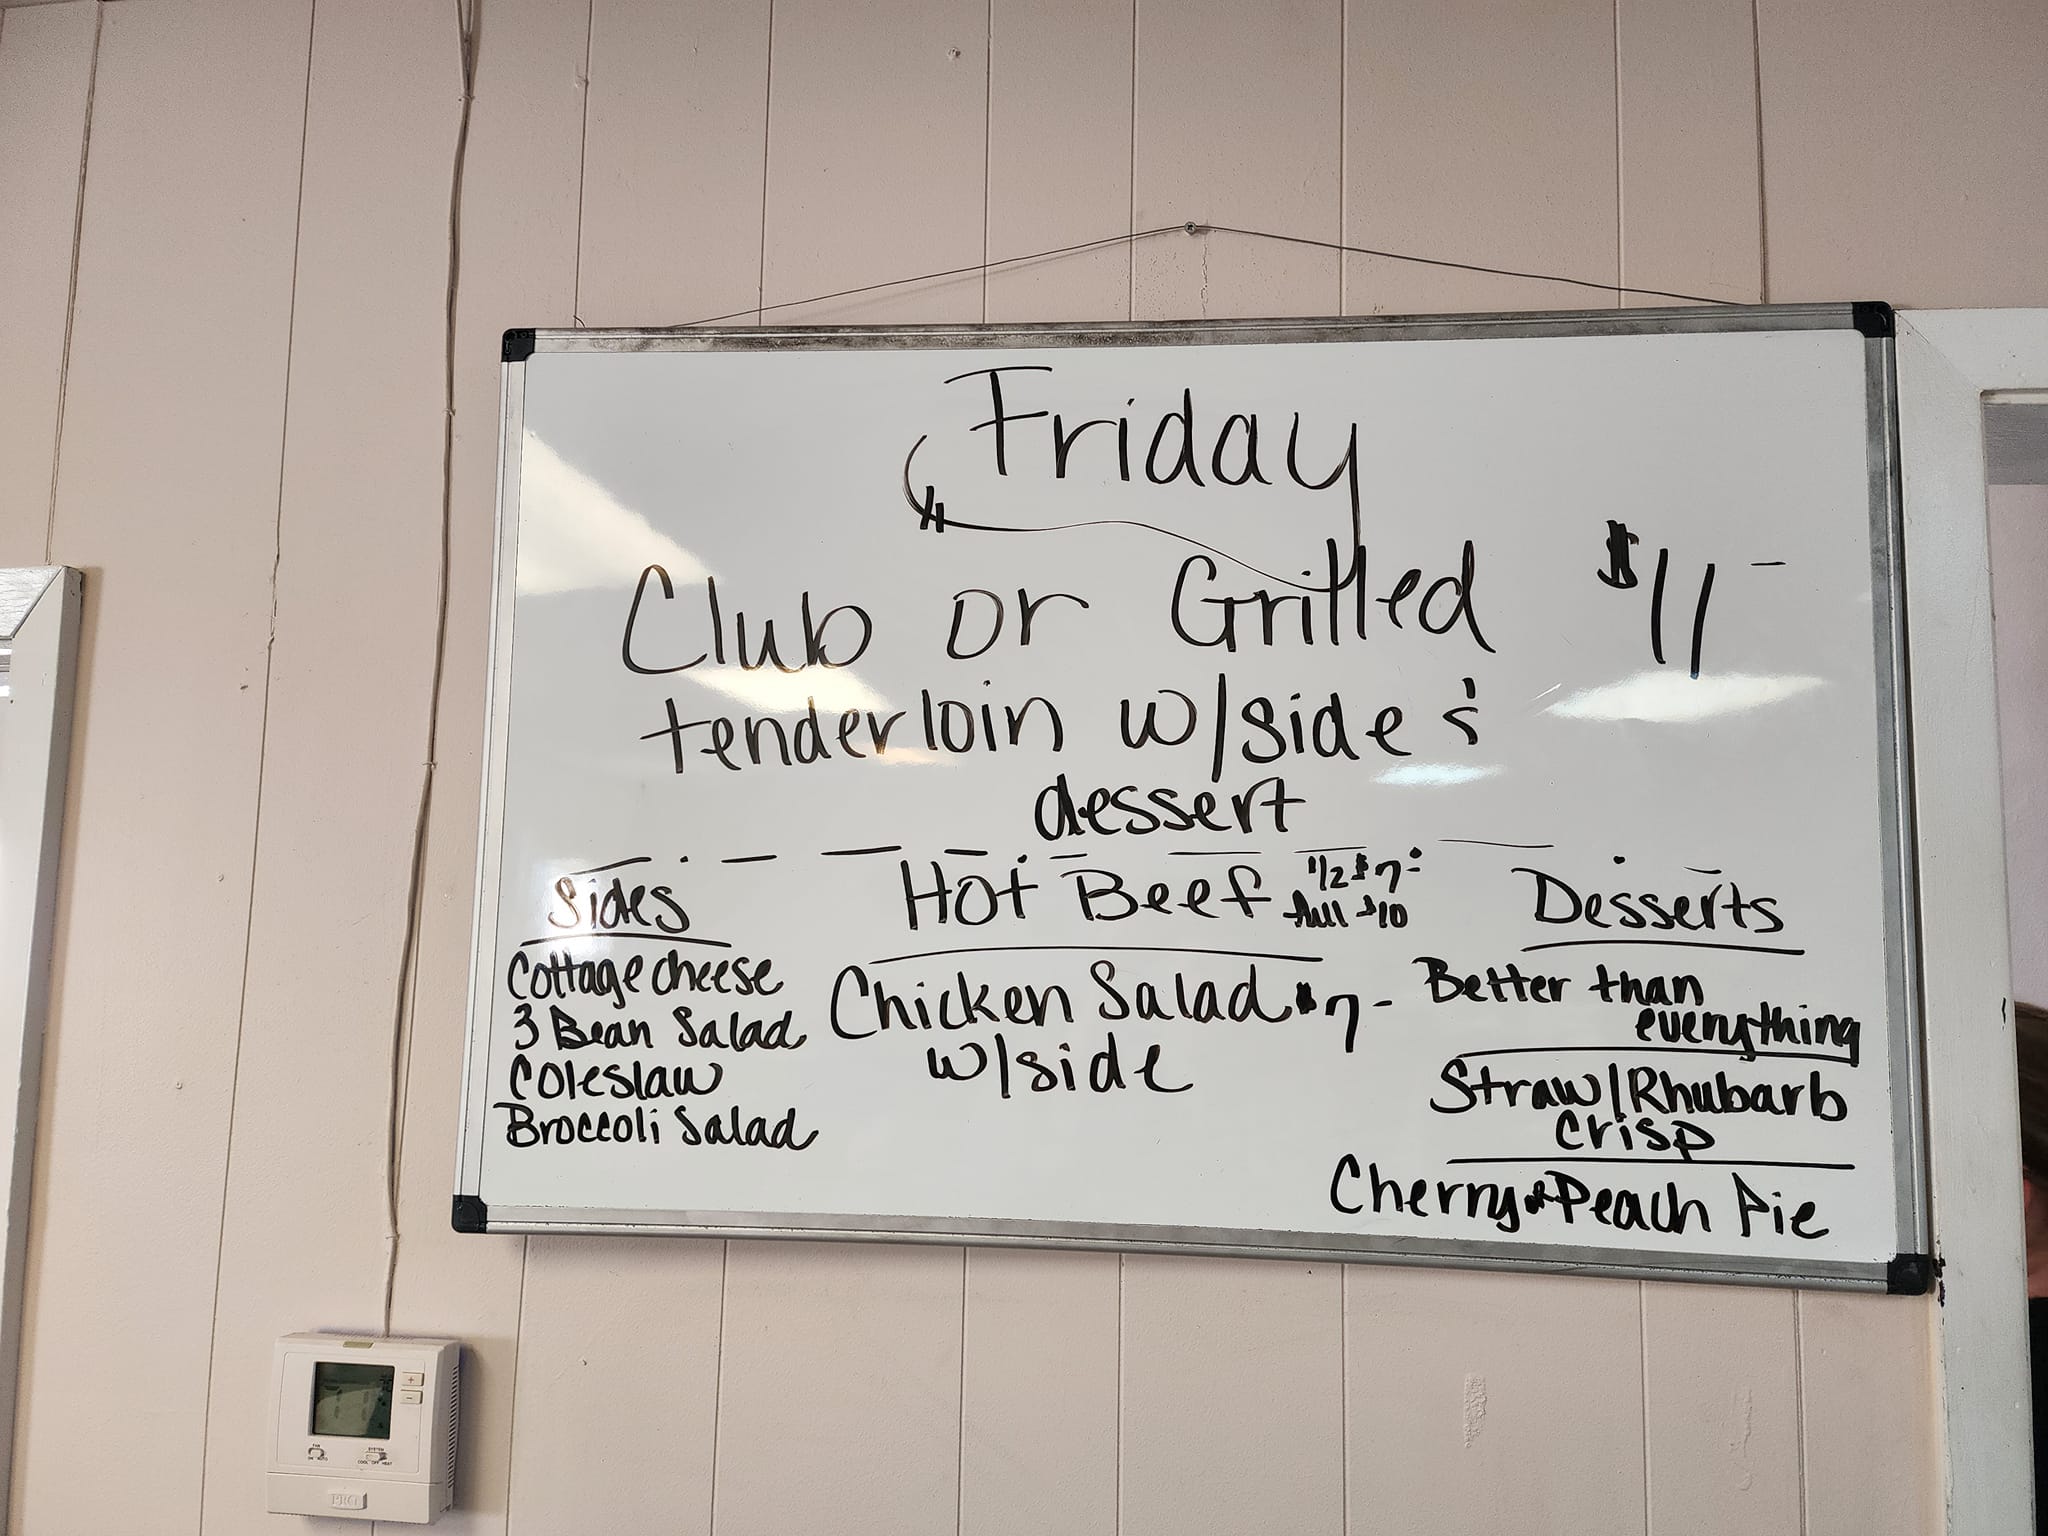 Friday
Club or Grilled $11-
tenderloin w/side &
dessert
Sides
Cottage cheese
3 Bean Salad
Coleslaw
Broccoli Salad
Hot Beef 1/2 $7-
full $10
Chicken Salad $7-
w/side
Desserts
Better than
everything
Straw/Rhubarb
Crisp
Cherry or Peach Pie
FAN
ON AUTO
SYSTEM
COOL OFF HEAT
PRO